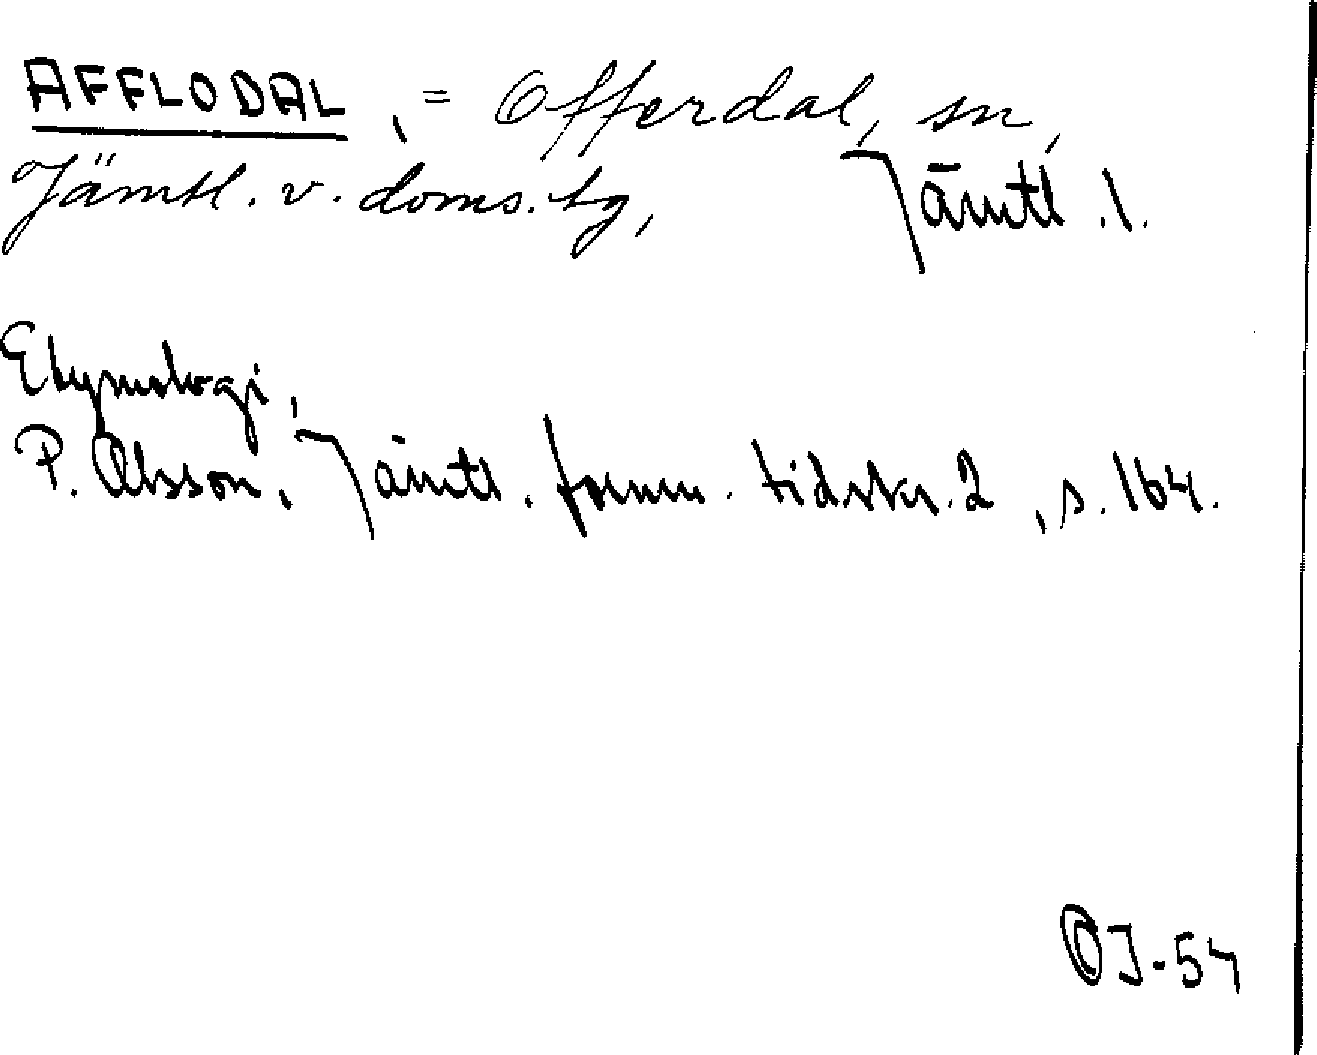 AFFLODAL, = Offerdal, sn,
Jämtl. v. doms. tg, Jämtl. l.
Etymologi,
P. Olsson, Jämtl. fornm. tidskr. 2, s. 164.
OJ-54